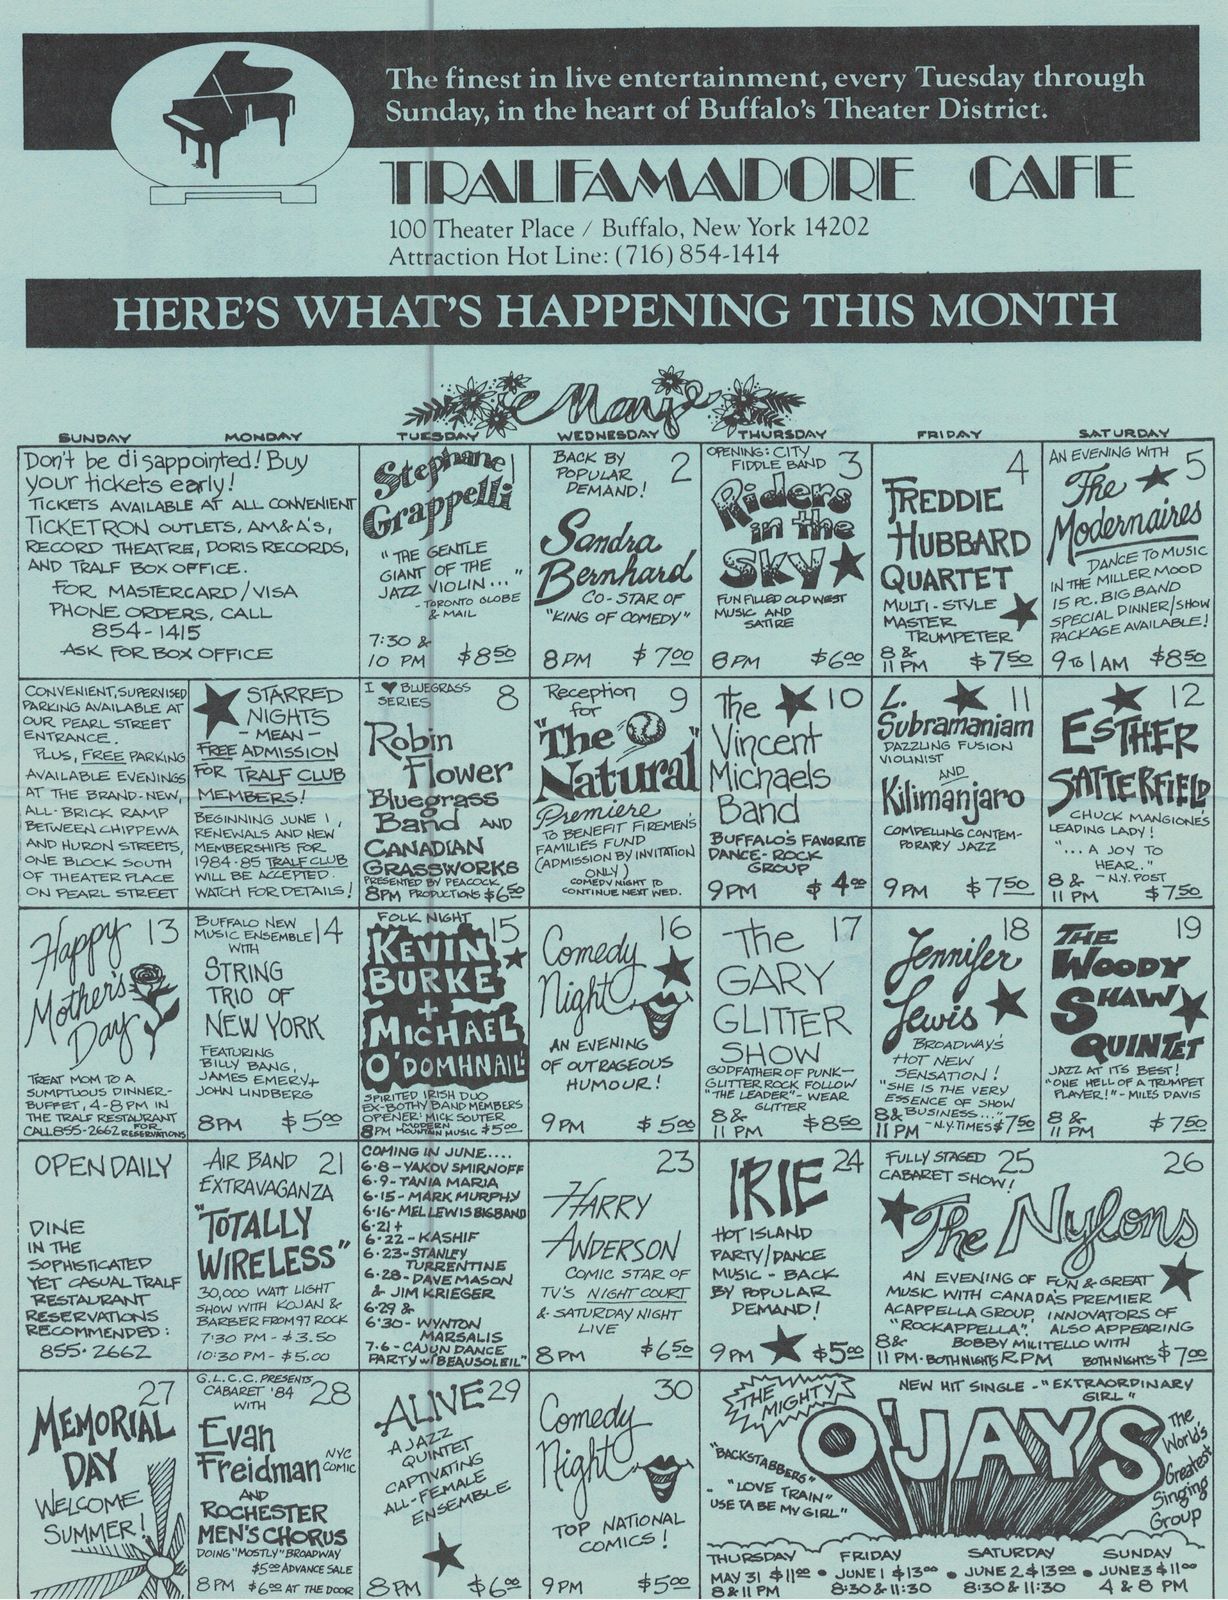 The finest in live entertainment, every Tuesday through
Sunday, in the heart of Buffalo's Theater District.
TRALFAMADORE CAFE
100 Theater Place / Buffalo, New York 14202
Attraction Hot Line: (716) 854-1414
HERE'S WHAT'S HAPPENING THIS MONTH
May
SUNDAY MONDAY TUESDAY WEDNESDAY THURSDAY FRIDAY SATURDAY
Don't be disappointed! Buy
your tickets early!
TICKETS AVAILABLE AT ALL CONVENIENT
TICKETRON OUTLETS, AM&A'S,
RECORD THEATRE, DORIS RECORDS,
AND TRALF BOX OFFICE.
FOR MASTERCARD/VISA
PHONE ORDERS, CALL
854-1415
ASK FOR BOX OFFICE
1
Stephane
Grappelli
"THE GENTLE
GIANT OF THE
JAZZ VIOLIN..."
-TORONTO GLOBE
& MAIL
7:30 &
10 PM $8.50
BACK BY
POPULAR
DEMAND!
2
Sandra
Bernhard
CO-STAR OF
"KING OF COMEDY"
8PM $7.00
OPENING: CITY
FIDDLE BAND
3
Riders
in the
SKY
FUN FILLED OLD WEST
MUSIC AND
SATIRE
8PM $6.00
4
FREDDIE
HUBBARD
QUARTET
MULTI-STYLE
MASTER
TRUMPETER
8 &
11 PM $7.50
AN EVENING WITH
5
The
Modernaires
DANCE TO MUSIC
IN THE MILLER MOOD
15 PC. BIG BAND
SPECIAL DINNER/SHOW
PACKAGE AVAILABLE!
9 TO 1 AM $8.50
CONVENIENT, SUPERVISED
PARKING AVAILABLE AT
OUR PEARL STREET
ENTRANCE.
PLUS, FREE PARKING
AVAILABLE EVENINGS
AT THE BRAND-NEW,
ALL-BRICK RAMP
BETWEEN CHIPPEWA
AND HURON STREETS,
ONE BLOCK SOUTH
OF THEATER PLACE
ON PEARL STREET
STARRED
NIGHTS
-MEAN-
FREE ADMISSION
FOR TRALF CLUB
MEMBERS!
BEGINNING JUNE 1,
RENEWALS AND NEW
MEMBERSHIPS FOR
1984-85 TRALF CLUB
WILL BE ACCEPTED.
WATCH FOR DETAILS!
I ♥ BLUEGRASS
SERIES
8
Robin
Flower
Bluegrass
Band AND
CANADIAN
GRASSWORKS
PRESENTED BY PEACOCK
8PM PRODUCTIONS $6.50
Reception
for
9
"The
Natural"
Premiere
TO BENEFIT FIREMEN'S
FAMILIES FUND
(ADMISSION BY INVITATION
ONLY)
COMEDY NIGHT TO
CONTINUE NEXT WED.
10
The
Vincent
Michaels
Band
BUFFALO'S FAVORITE
DANCE-ROCK
GROUP
9PM $4.00
11
L.
Subramaniam
DAZZLING FUSION
VIOLINIST
AND
Kilimanjaro
COMPELLING CONTEM-
PORARY JAZZ
9PM $7.50
12
ESTHER
SATTERFIELD
CHUCK MANGIONE'S
LEADING LADY!
"...A JOY TO
HEAR."
-N.Y. POST
8 &
11 PM $7.50
13
Happy
Mother's
Day
TREAT MOM TO A
SUMPTUOUS DINNER-
BUFFET, 4-8 PM IN
THE TRALF RESTAURANT
CALL 855-2662 FOR
RESERVATIONS
BUFFALO NEW
MUSIC ENSEMBLE
WITH
14
STRING
TRIO OF
NEW YORK
FEATURING
BILLY BANG,
JAMES EMERY +
JOHN LINDBERG
8PM $5.00
FOLK NIGHT
15
KEVIN
BURKE
+
MICHAEL
O'DOMHNAIL
SPIRITED IRISH DUO
EX-BOTHY BAND MEMBERS
OPENER: MICK SOUTER
8PM MODERN
MOUNTAIN MUSIC $5.00
16
Comedy
Night
AN EVENING
OF OUTRAGEOUS
HUMOUR!
9PM $5.00
17
The
GARY
GLITTER
SHOW
GODFATHER OF PUNK—
GLITTER ROCK FOLLOW
"THE LEADER"-WEAR
GLITTER
8 &
11 PM $8.50
18
Jennifer
Lewis
BROADWAY'S
HOT NEW
SENSATION!
"SHE IS THE VERY
ESSENCE OF SHOW
BUSINESS..."
8 &
11 PM -N.Y. TIMES $7.50
19
THE
WOODY
SHAW
QUINTET
JAZZ AT ITS BEST!
"ONE HELL OF A TRUMPET
PLAYER!"-MILES DAVIS
8 &
11 PM $7.50
OPEN DAILY
DINE
IN THE
SOPHISTICATED
YET CASUAL TRALF
RESTAURANT
RESERVATIONS
RECOMMENDED:
855-2662
AIR BAND
EXTRAVAGANZA
21
"TOTALLY
WIRELESS"
30,000 WATT LIGHT
SHOW WITH KOJAN &
BARBER FROM 97 ROCK
7:30 PM-$3.50
10:30 PM-$5.00
COMING IN JUNE....
6-8-YAKOV SMIRNOFF
6-9-TANIA MARIA
6-15-MARK MURPHY
6-16-MEL LEWIS BIG BAND
6-21+
6-22-KASHIF
6-23-STANLEY
TURRENTINE
6-28-DAVE MASON
& JIM KRIEGER
6-29 &
6-30-WYNTON
MARSALIS
7-6-CAJUN DANCE
PARTY W/"BEAUSOLEIL"
23
HARRY
ANDERSON
COMIC STAR OF
TV'S NIGHT COURT
& SATURDAY NIGHT
LIVE
8PM $6.50
24
IRIE
HOT ISLAND
PARTY/DANCE
MUSIC-BACK
BY POPULAR
DEMAND!
9PM $5.00
FULLY STAGED
CABARET SHOW!
25 26
The Nylons
AN EVENING OF FUN & GREAT
MUSIC WITH CANADA'S PREMIER
ACAPPELLA GROUP, INNOVATORS OF
"ROCKAPPELLA". ALSO APPEARING
BOBBY MILITELLO WITH
8 &
11 PM-BOTH NIGHTS R.P.M BOTH NIGHTS $7.00
27
MEMORIAL
DAY
WELCOME
SUMMER!
G.L.C.C. PRESENTS
CABARET '84
WITH
28
Evan
Freidman
NYC
COMIC
AND
ROCHESTER
MEN'S CHORUS
DOING "MOSTLY" BROADWAY
$5.00 ADVANCE SALE
8PM $6.00 AT THE DOOR
29
ALIVE
A JAZZ
QUINTET
CAPTIVATING
ALL-FEMALE
ENSEMBLE
8PM $6.00
30
Comedy
Night
TOP NATIONAL
COMICS!
9PM $5.00
THE
MIGHTY
NEW HIT SINGLE-"EXTRAORDINARY
GIRL"
O'JAYS
"BACKSTABBERS"
-"LOVE TRAIN"
USE TA BE MY GIRL"
The
World's
Greatest
Singing
Group
THURSDAY
MAY 31 $11.00
8 & 11 PM
FRIDAY
JUNE 1 $13.00
8:30 & 11:30
SATURDAY
JUNE 2 $13.00
8:30 & 11:30
SUNDAY
JUNE 3 $11.00
4 & 8 PM